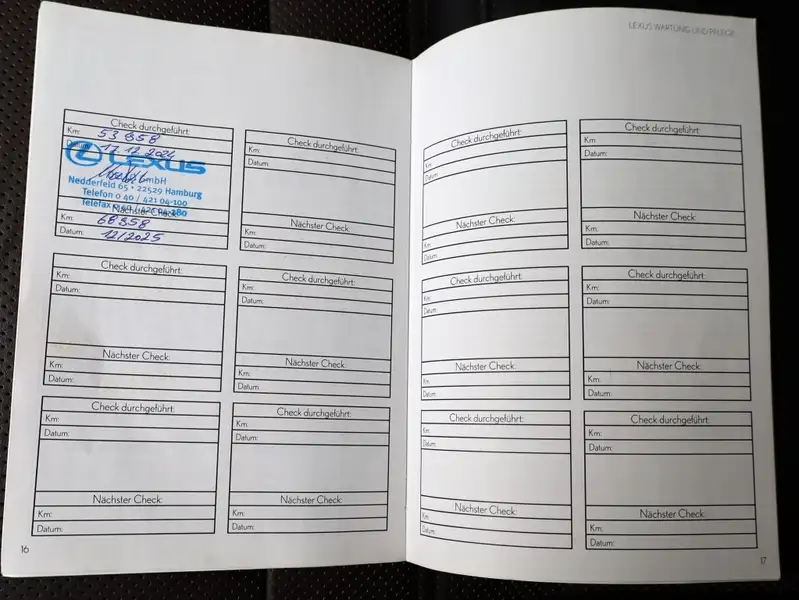 LEXUS WARTUNG UND PFLEGE
Check durchgeführt:
Km: 53 858
Datum: 17.12.2024
LEXUS
GmbH
Nedderfeld 65 • 22529 Hamburg
Telefon 0 40 / 421 04-100
Telefax 0 40 / 421 04-180
Nächster Check:
Km: 68 858
Datum: 12/2025
Check durchgeführt:
Km:
Datum:
Nächster Check:
Km:
Datum:
Check durchgeführt:
Km:
Datum:
Nächster Check:
Km:
Datum:
Check durchgeführt:
Km:
Datum:
Nächster Check:
Km:
Datum:
Check durchgeführt:
Km:
Datum:
Nächster Check:
Km:
Datum:
Check durchgeführt:
Km:
Datum:
Nächster Check:
Km:
Datum:
16
Check durchgeführt:
Km:
Datum:
Nächster Check:
Km:
Datum:
Check durchgeführt:
Km:
Datum:
Nächster Check:
Km:
Datum:
Check durchgeführt:
Km:
Datum:
Nächster Check:
Km:
Datum:
Check durchgeführt:
Km:
Datum:
Nächster Check:
Km:
Datum:
Check durchgeführt:
Km:
Datum:
Nächster Check:
Km:
Datum:
Check durchgeführt:
Km:
Datum:
Nächster Check:
Km:
Datum:
17